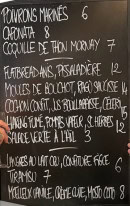 POIVRONS MARINÉS 6
CAPONATA 8
COQUILLE DE THON MORNAY 7
FLATBREAD ANIS, PISSALADIÈRE 12
MOULES DE BOUCHOT, RAGÙ SAUCISSE 14
COCHON CONFIT, JUS BOUILLABAISSE, CÉLERI
HADDOCK FUMÉ, POMMES VAPEUR, HERBES 12
SALADE VERTE À L'AIL 3
LAIT CRU, CONFITURE FIGUE 6
TIRAMISU 7
MOELLEUX VANILLE, CRÈME CUITE, 8